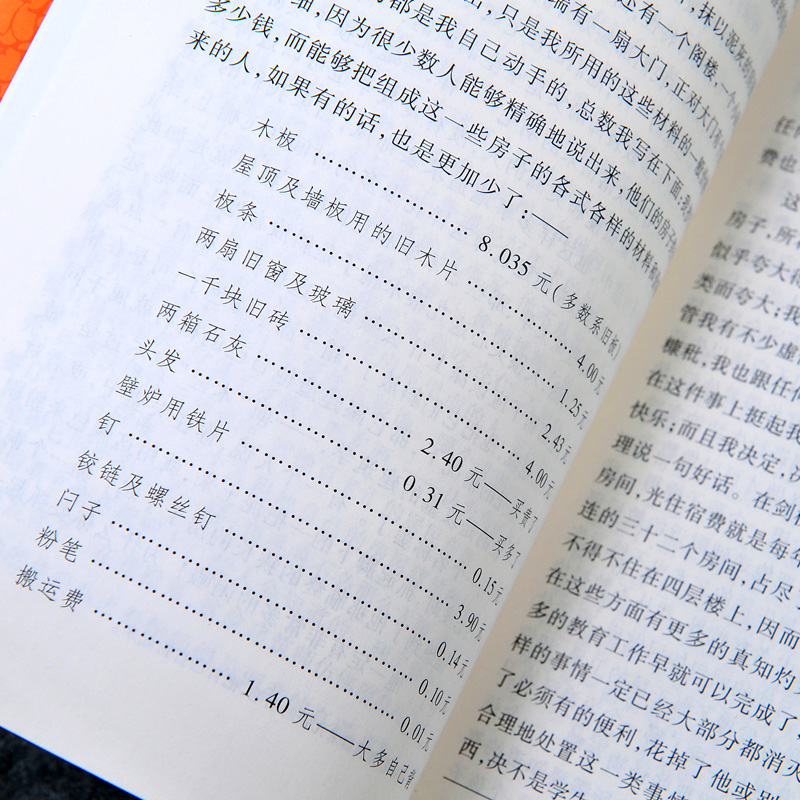 还有一个阁楼,一个
端有一扇大门,正对大门
出,只是我所用的这些材料的一般
都是我自己动手的,总数我写在下面;我
细,因为很少数人能够精确地说出来,他们的房子
多少钱,而能够把组成这一些房子的各式各样的材料和
来的人,如果有的话,也是更加少了:——
木板 …… 8.035 元(多数系旧板)
屋顶及墙板用的旧木片 …… 4.00 元
板条 …… 1.25 元
两扇旧窗及玻璃 …… 2.43 元
一千块旧砖 …… 4.00 元
两箱石灰 …… 2.40 元——买贵了
头发 …… 0.31 元——买多了
壁炉用铁片 …… 0.15 元
钉 …… 3.90 元
铰链及螺丝钉 …… 0.14 元
闩子 …… 0.10 元
粉笔 …… 0.01 元
搬运费 …… 1.40 元——大多自己背
费也
这
房子,所
似乎夸大得
类而夸大;我
管我有不少虚
糠秕,我也跟任何
在这件事上挺起我
快乐;而且我决定,决
理说一句好话。在剑
房间,光住宿费就是每年
连的三十二个房间,占尽
不得不住在四层楼上,因而
在这些方面有更多的真知灼
多的教育工作早就可以完成了,
样的事情一定已经大部分都消灭
了必须有的便利,花掉了他或别
合理地处置这一类事情
西,决不是学生